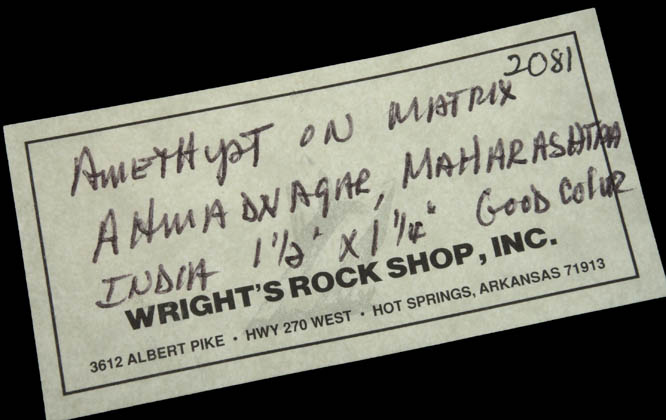 2081
AMETHYST ON MATRIX
AHMADNAGAR, MAHARASHTRA
INDIA 1 1/2" X 1 1/4" GOOD COLOR
WRIGHT'S ROCK SHOP, INC.
3612 ALBERT PIKE • HWY 270 WEST • HOT SPRINGS, ARKANSAS 71913